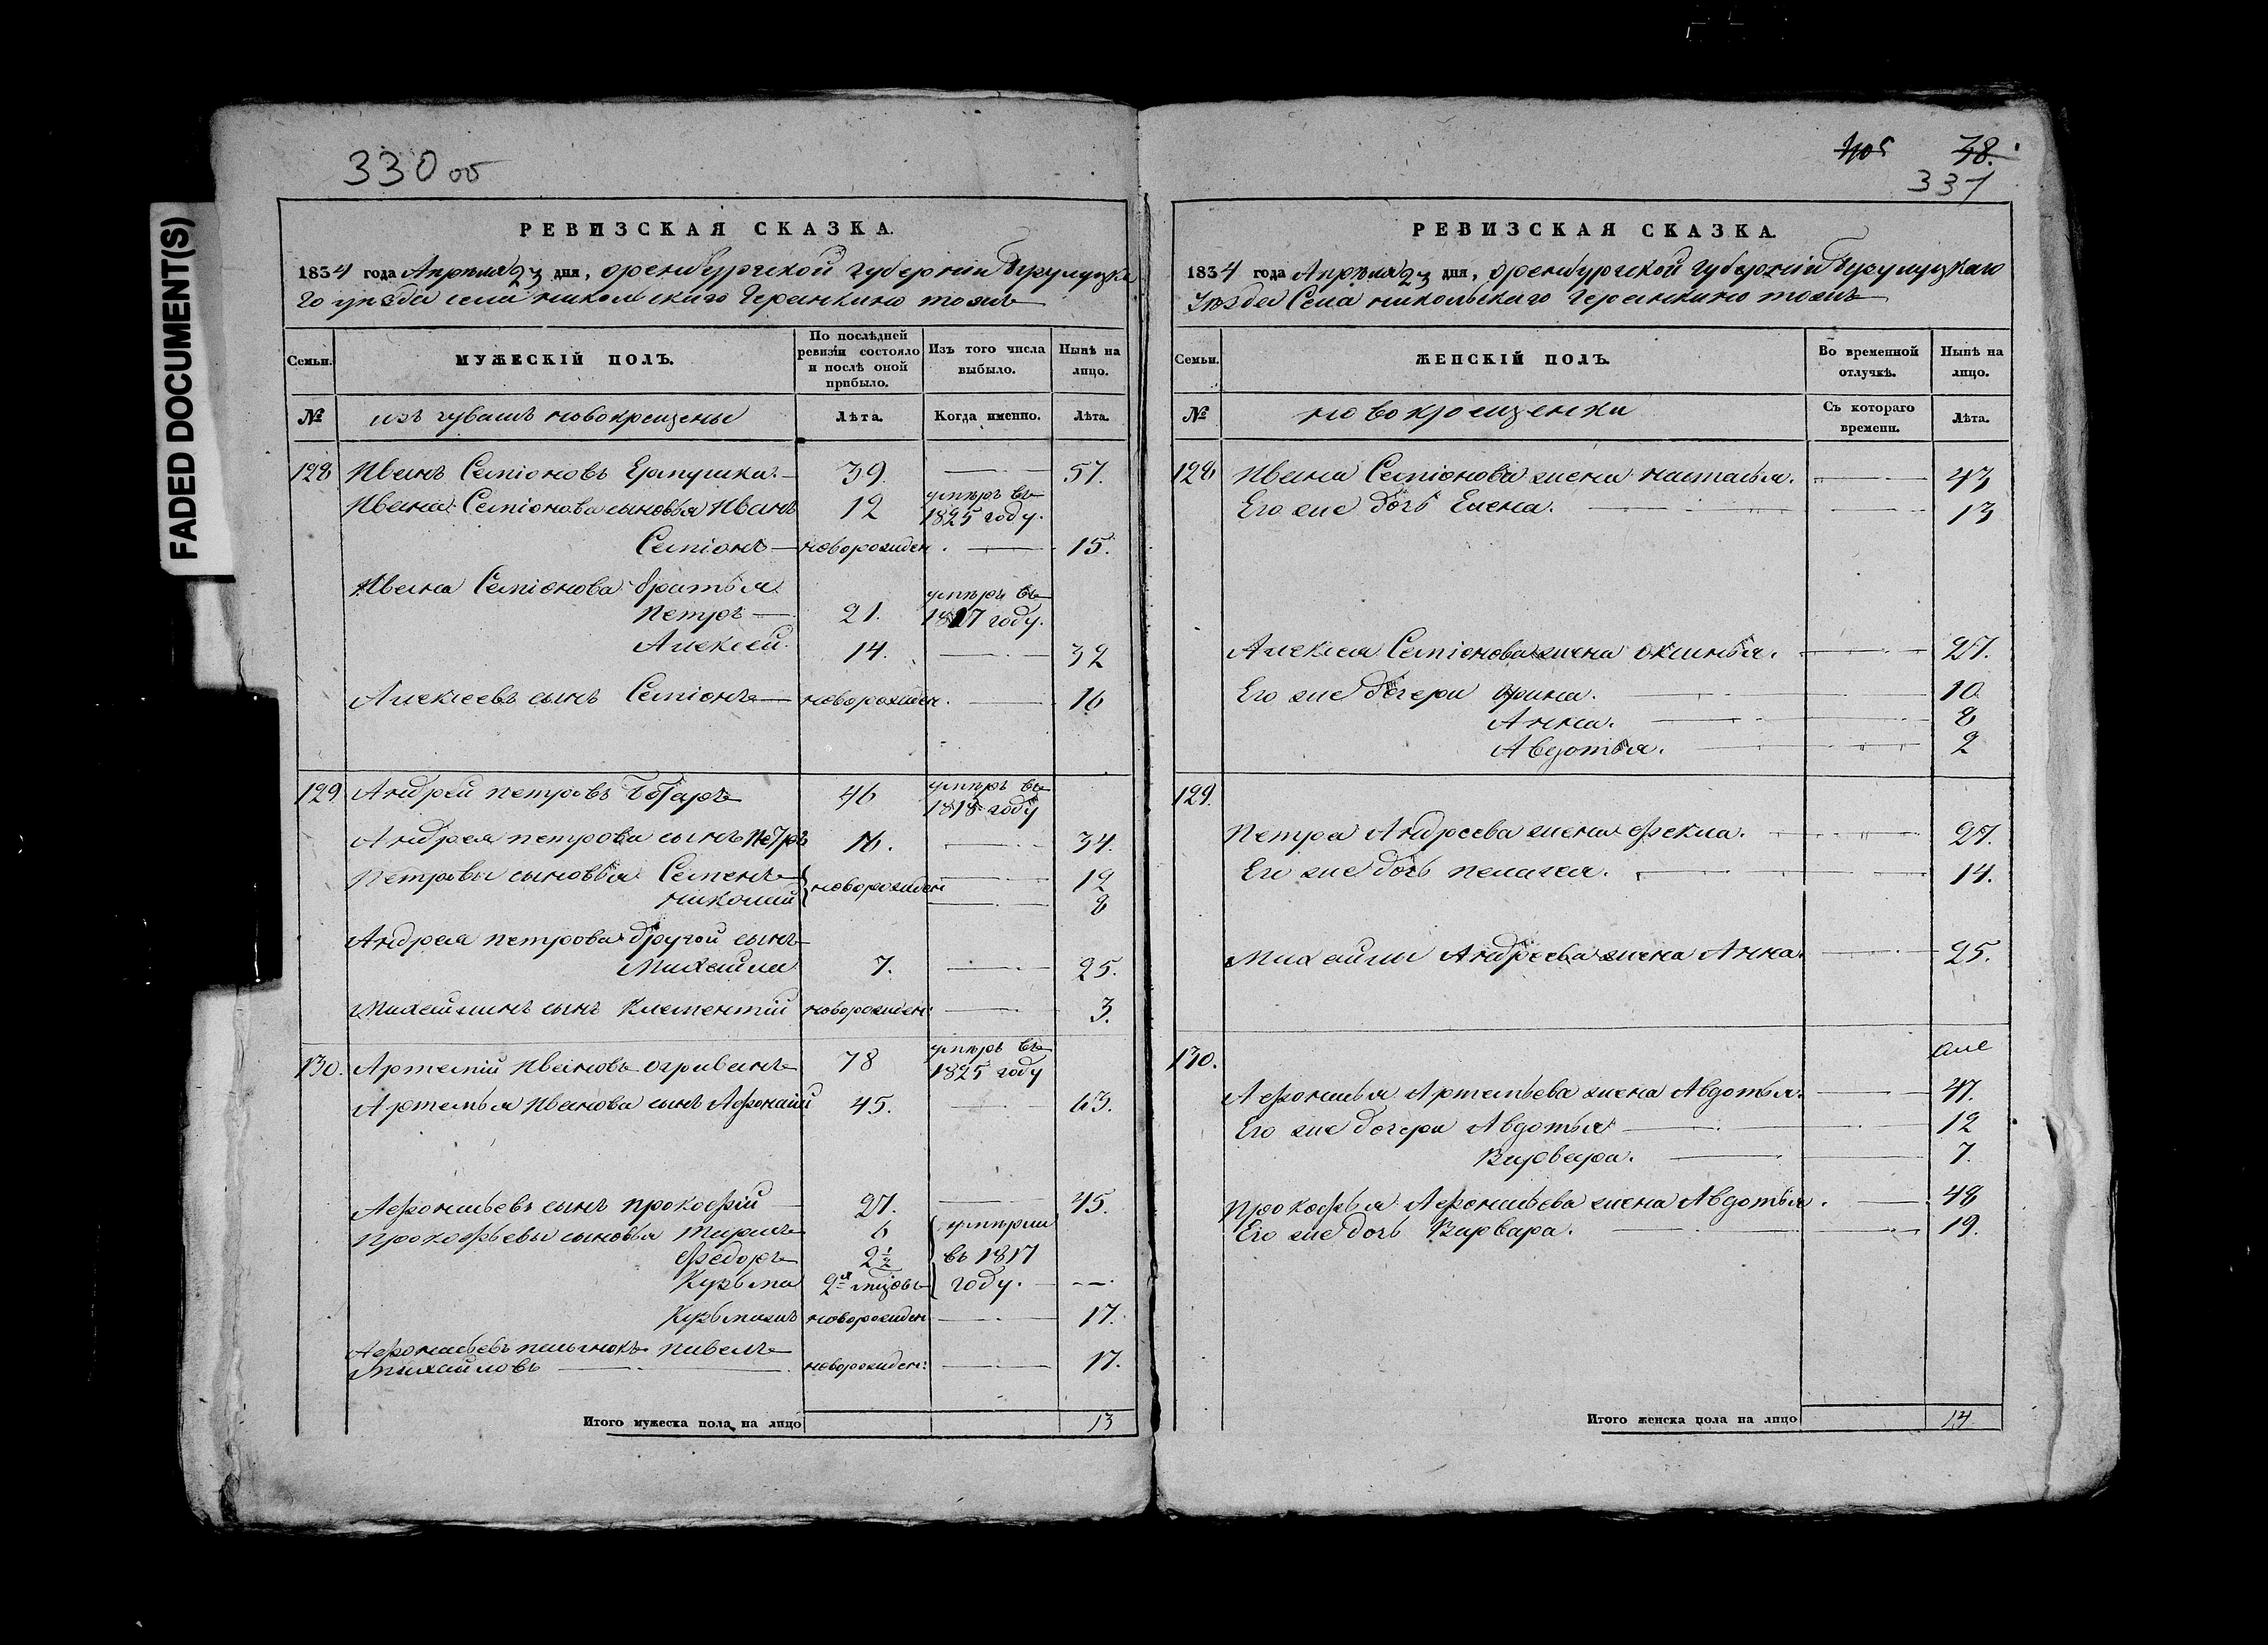 FADED DOCUMENT(S)
330 об
РЕВИЗСКАЯ СКАЗКА.
1834 года Апреля 23 дня, оренбургской губернии Бузулуцка
го уезда села никольскаго Геранкино тожъ
Семьи.
МУЖЕСКІЙ ПОЛЪ.
По послѣдней ревизіи состояло и послѣ оной прибыло.
Изъ того числа выбыло.
Нынѣ на лицо.
№
изъ чувашъ новокрещены
Лѣта.
Когда именно.
Лѣта.
128 Иванъ Семіоновъ Ермушка 39. 57.
Ивана Семіонова сыновья Иванъ 12 умѣръ въ 1825 году.
Семіонъ новорожден. 15.
Ивана Семіонова братья
Петръ 21. умѣръ въ 1827 году.
Алексей. 14. 32
Алексеевъ сынъ Семіонъ новорожден. 16
129 Андрей петровъ 46 умѣръ въ 1818 году
Андрея петрова сынъ Петръ 16. 34.
Петровы сыновья Семенъ новорожден 12
николай 8
Андрея петрова другой сынъ
Михайла 7. 25.
Михайлинъ сынъ Клементій новорожден: 3.
130. Артемій Ивановъ 78 умѣръ въ 1825 году
Артемья Иванова сынъ Афонасій 45. 63.
Афонасьевъ сынъ прокофій 27. 45.
Прокофьевы сыновья 6 умѣрли
Федоръ 2½ въ 1817
Кузьма 2х году.
новорожден 17.
Афонасьевъ павелъ
Михайловъ новорожден: 17.
Итого мужеска пола на лицо 13
78.
331
РЕВИЗСКАЯ СКАЗКА.
1834 года Апреля 23 дня, оренбургской губерніи Бузулуцкаго
Уезда Села никольскаго Геранкино тожъ
Семьи.
ЖЕНСКІЙ ПОЛЪ.
Во временной отлучкѣ.
Нынѣ на лицо.
№
новокрещенки
Съ котораго времени.
Лѣта.
128 Ивана Семіонова жена настасья. 43
Его же дочь Елена. 13
Алексея Семіонова жена оксинья. 27.
Его же дочери Ирина. 10
Анна. 8
Авдотья. 2
129.
Петра Андреева жена фекла. 27.
Его же дочь пелагея. 14.
Михайлы Андреева жена Анна. 25.
130.
Афонасья Артемьева жена Авдотья. 47.
Его же дочери Авдотья 12
Варвара. 7.
Прокофья Афонасьева жена Авдотья. 48
Его же дочь Варвара. 19.
Итого женска пола на лицо 14